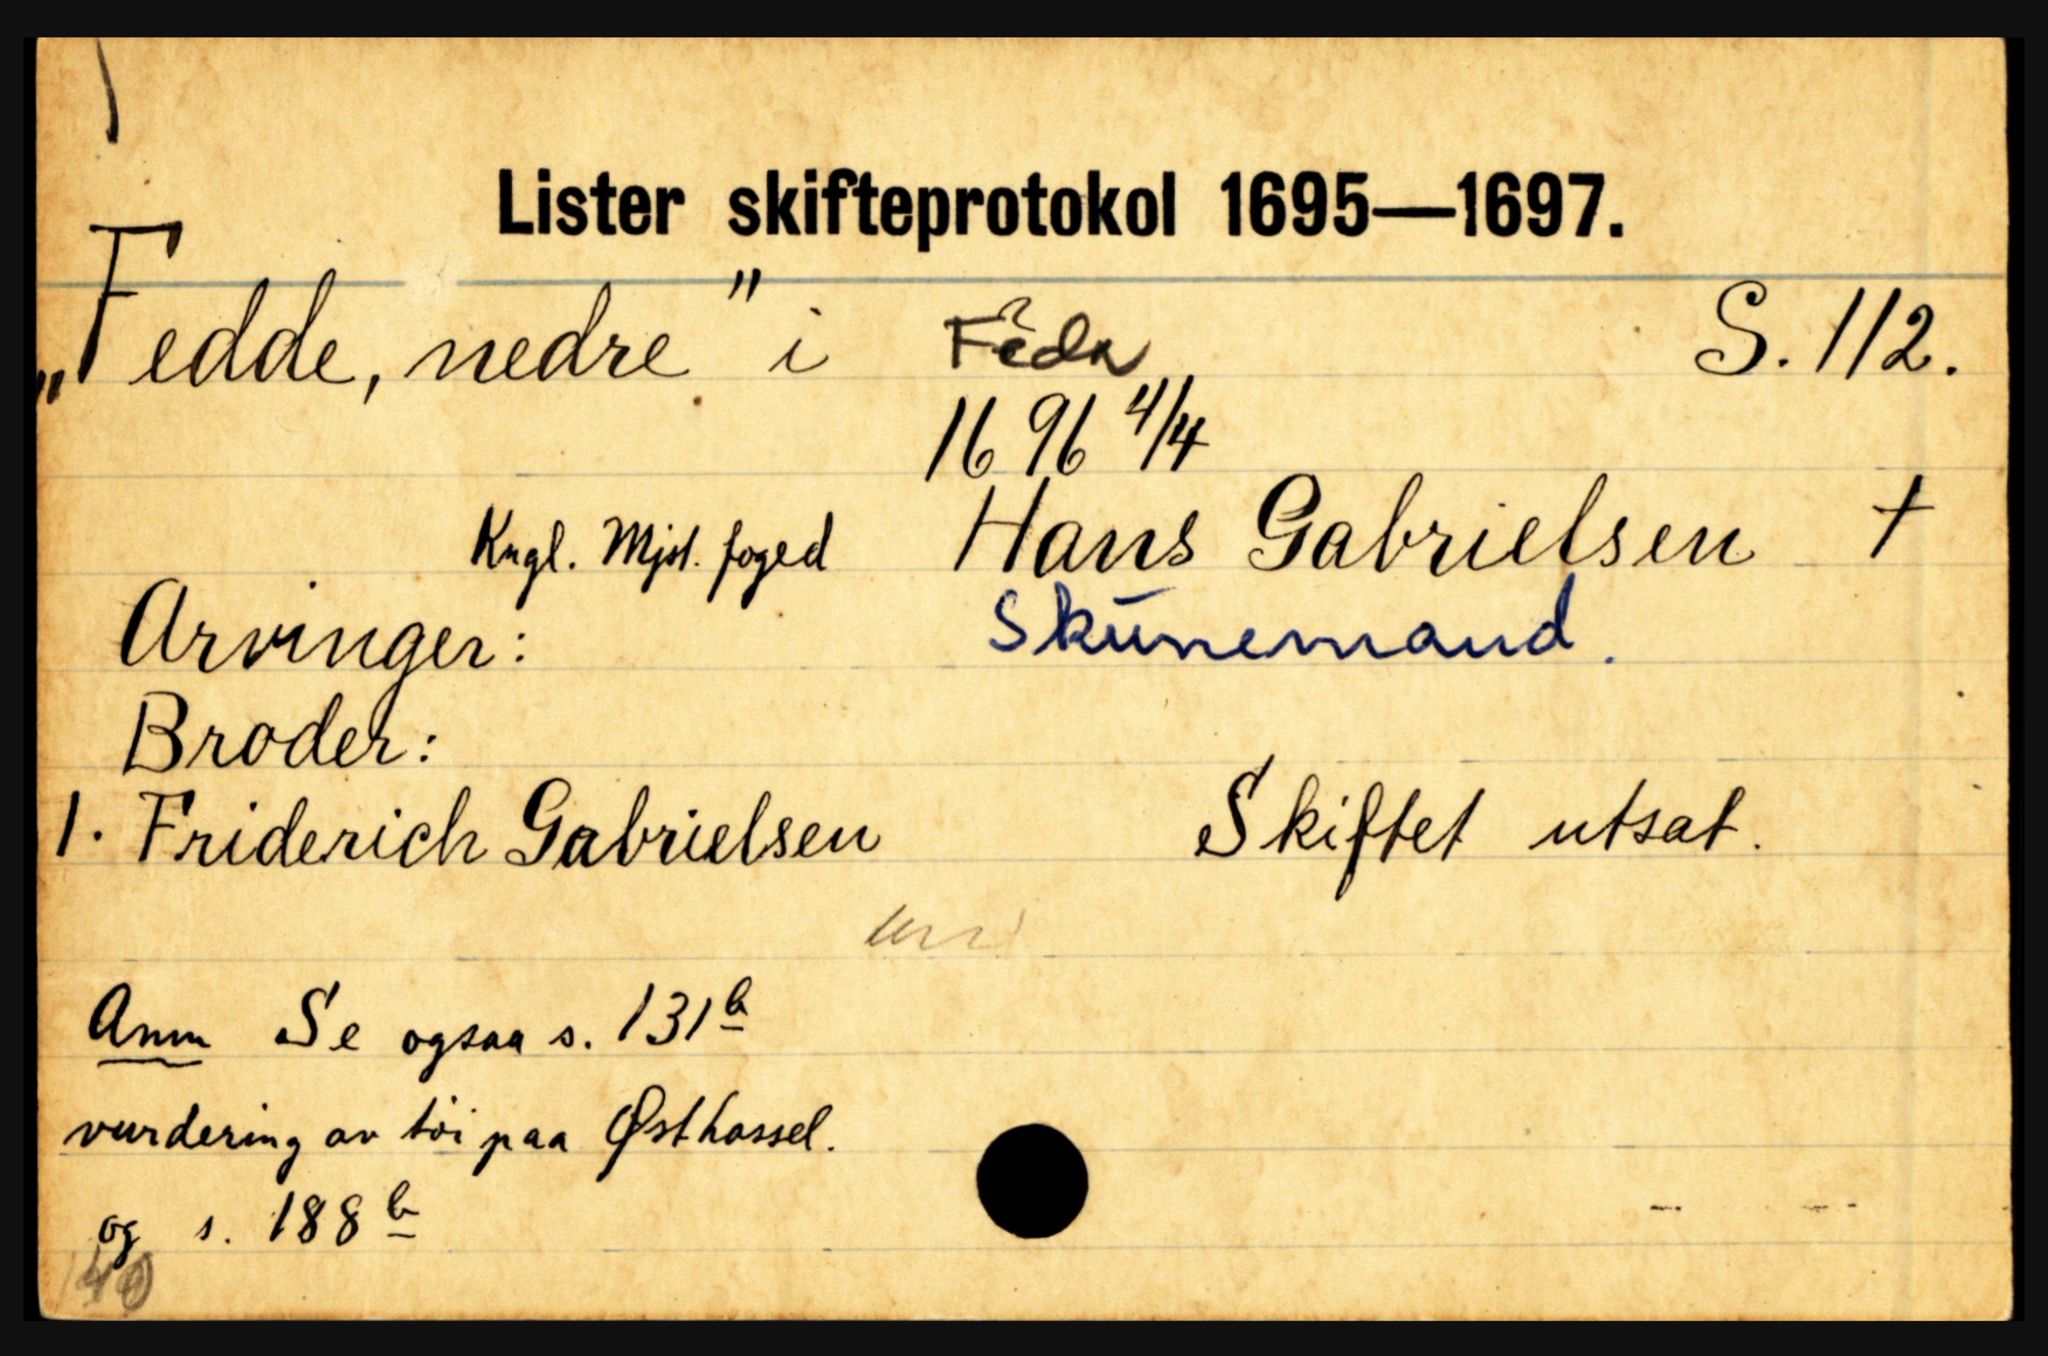 Lister skifteprotokol 1695—1697.
„Fedde, nedre" i Feda S. 112.
1696 4/4
Kngl. Mjst. foged Hans Gabrielsen †
Arvinger: Skünemand.
Broder:
1. Friderich Gabrielsen Skiftet utsat.
Anm Se ogsaa s. 131b
vurdering av töi paa Østhassel.
og s. 188b
140